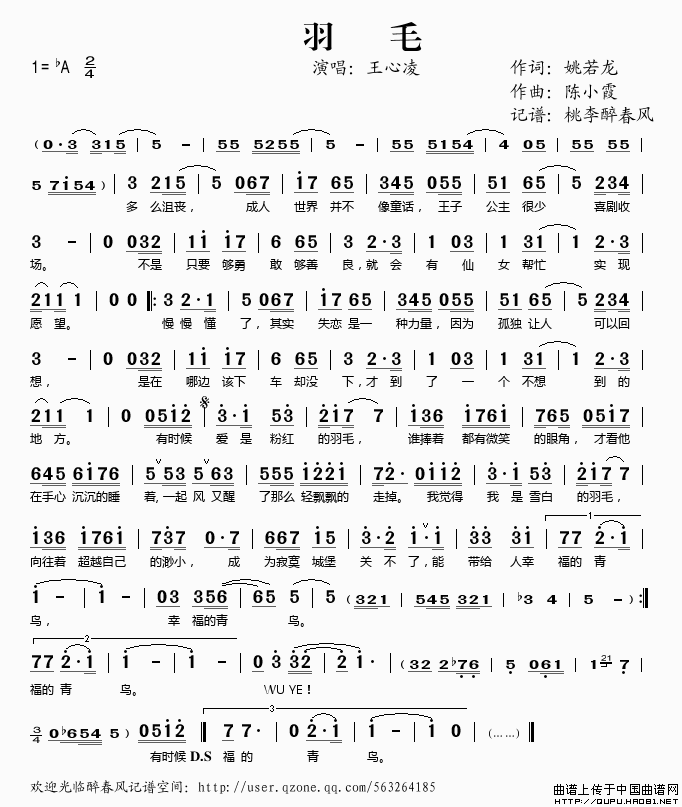 羽 毛
1=♭A 2/4 演唱：王心凌 作词：姚若龙
作曲：陈小霞
记谱：桃李醉春风
(0·3 315 | 5 - | 55 5255 | 5 - | 55 5154 | 4 05 | 55 55
5 7154) | 3 215 | 5 067 | 17 65 | 345 055 | 51 65 | 5 234
多 么沮丧， 成人 世界 并不 像童话， 王子 公主 很少 喜剧收
3 - | 0 032 | 11 17 | 6 65 | 3 2·3 | 1 03 | 1 31 | 1 2·3
场。 不是 只要 够勇 敢 够善 良，就 会 有 仙 女 帮忙 实 现
211 1 | 0 0 ‖: 3 2·1 | 5 067 | 17 65 | 345 055 | 51 65 | 5 234
愿 望。 慢 慢 懂 了，其实 失恋 是一 种力量，因为 孤独 让人 可以回
3 - | 0 032 | 11 17 | 6 65 | 3 2·3 | 1 03 | 1 31 | 1 2·3
想， 是在 哪边 该下 车 却没 下，才 到 了 一 个 不想 到 的
211 1 | 0 0512 | 3·1 53 | 217 7 | 136 1761 | 765 0517
地 方。 有时候 爱 是 粉红 的羽毛， 谁捧着 都有微笑 的眼角，才看他
645 6176 | 5 53 | 5 63 | 555 1221 | 72· 0112 | 3·1 53 | 217 7
在手心 沉沉的睡 着，一起 风 又醒 了那么 轻飘飘的 走掉。 我觉得 我 是 雪白 的羽毛，
136 1761 | 737 0·7 | 667 15 | 3·2 1·1 | 33 31 | 77 2·1
1.
向往着 超越自己 的渺小， 成 为寂寞 城堡 关 不 了，能 带给 人幸 福的 青
1 - | 1 - | 03 356 | 65 5 | 5 (321 | 545 321 | ♭3 4 | 5 - :‖
鸟， 幸 福的青 鸟。
2.
77 2·1 | 1 - | 1 - | 0 3 32 | 2 1· | (32 2♭76 | 5 061 | 1 21/3 7 |
福的 青 鸟。 WU YE！
3/4 0♭654 5) | 0512 ‖ 7 7· | 0 2·1 | 1 - | 1 - | (……) ‖
3
有时候 D.S 福 的 青 鸟。
欢迎光临醉春风记谱空间：http://user.qzone.qq.com/563264185
曲谱上传于中国曲谱网
HTTP://QUPU.HAO81.NET